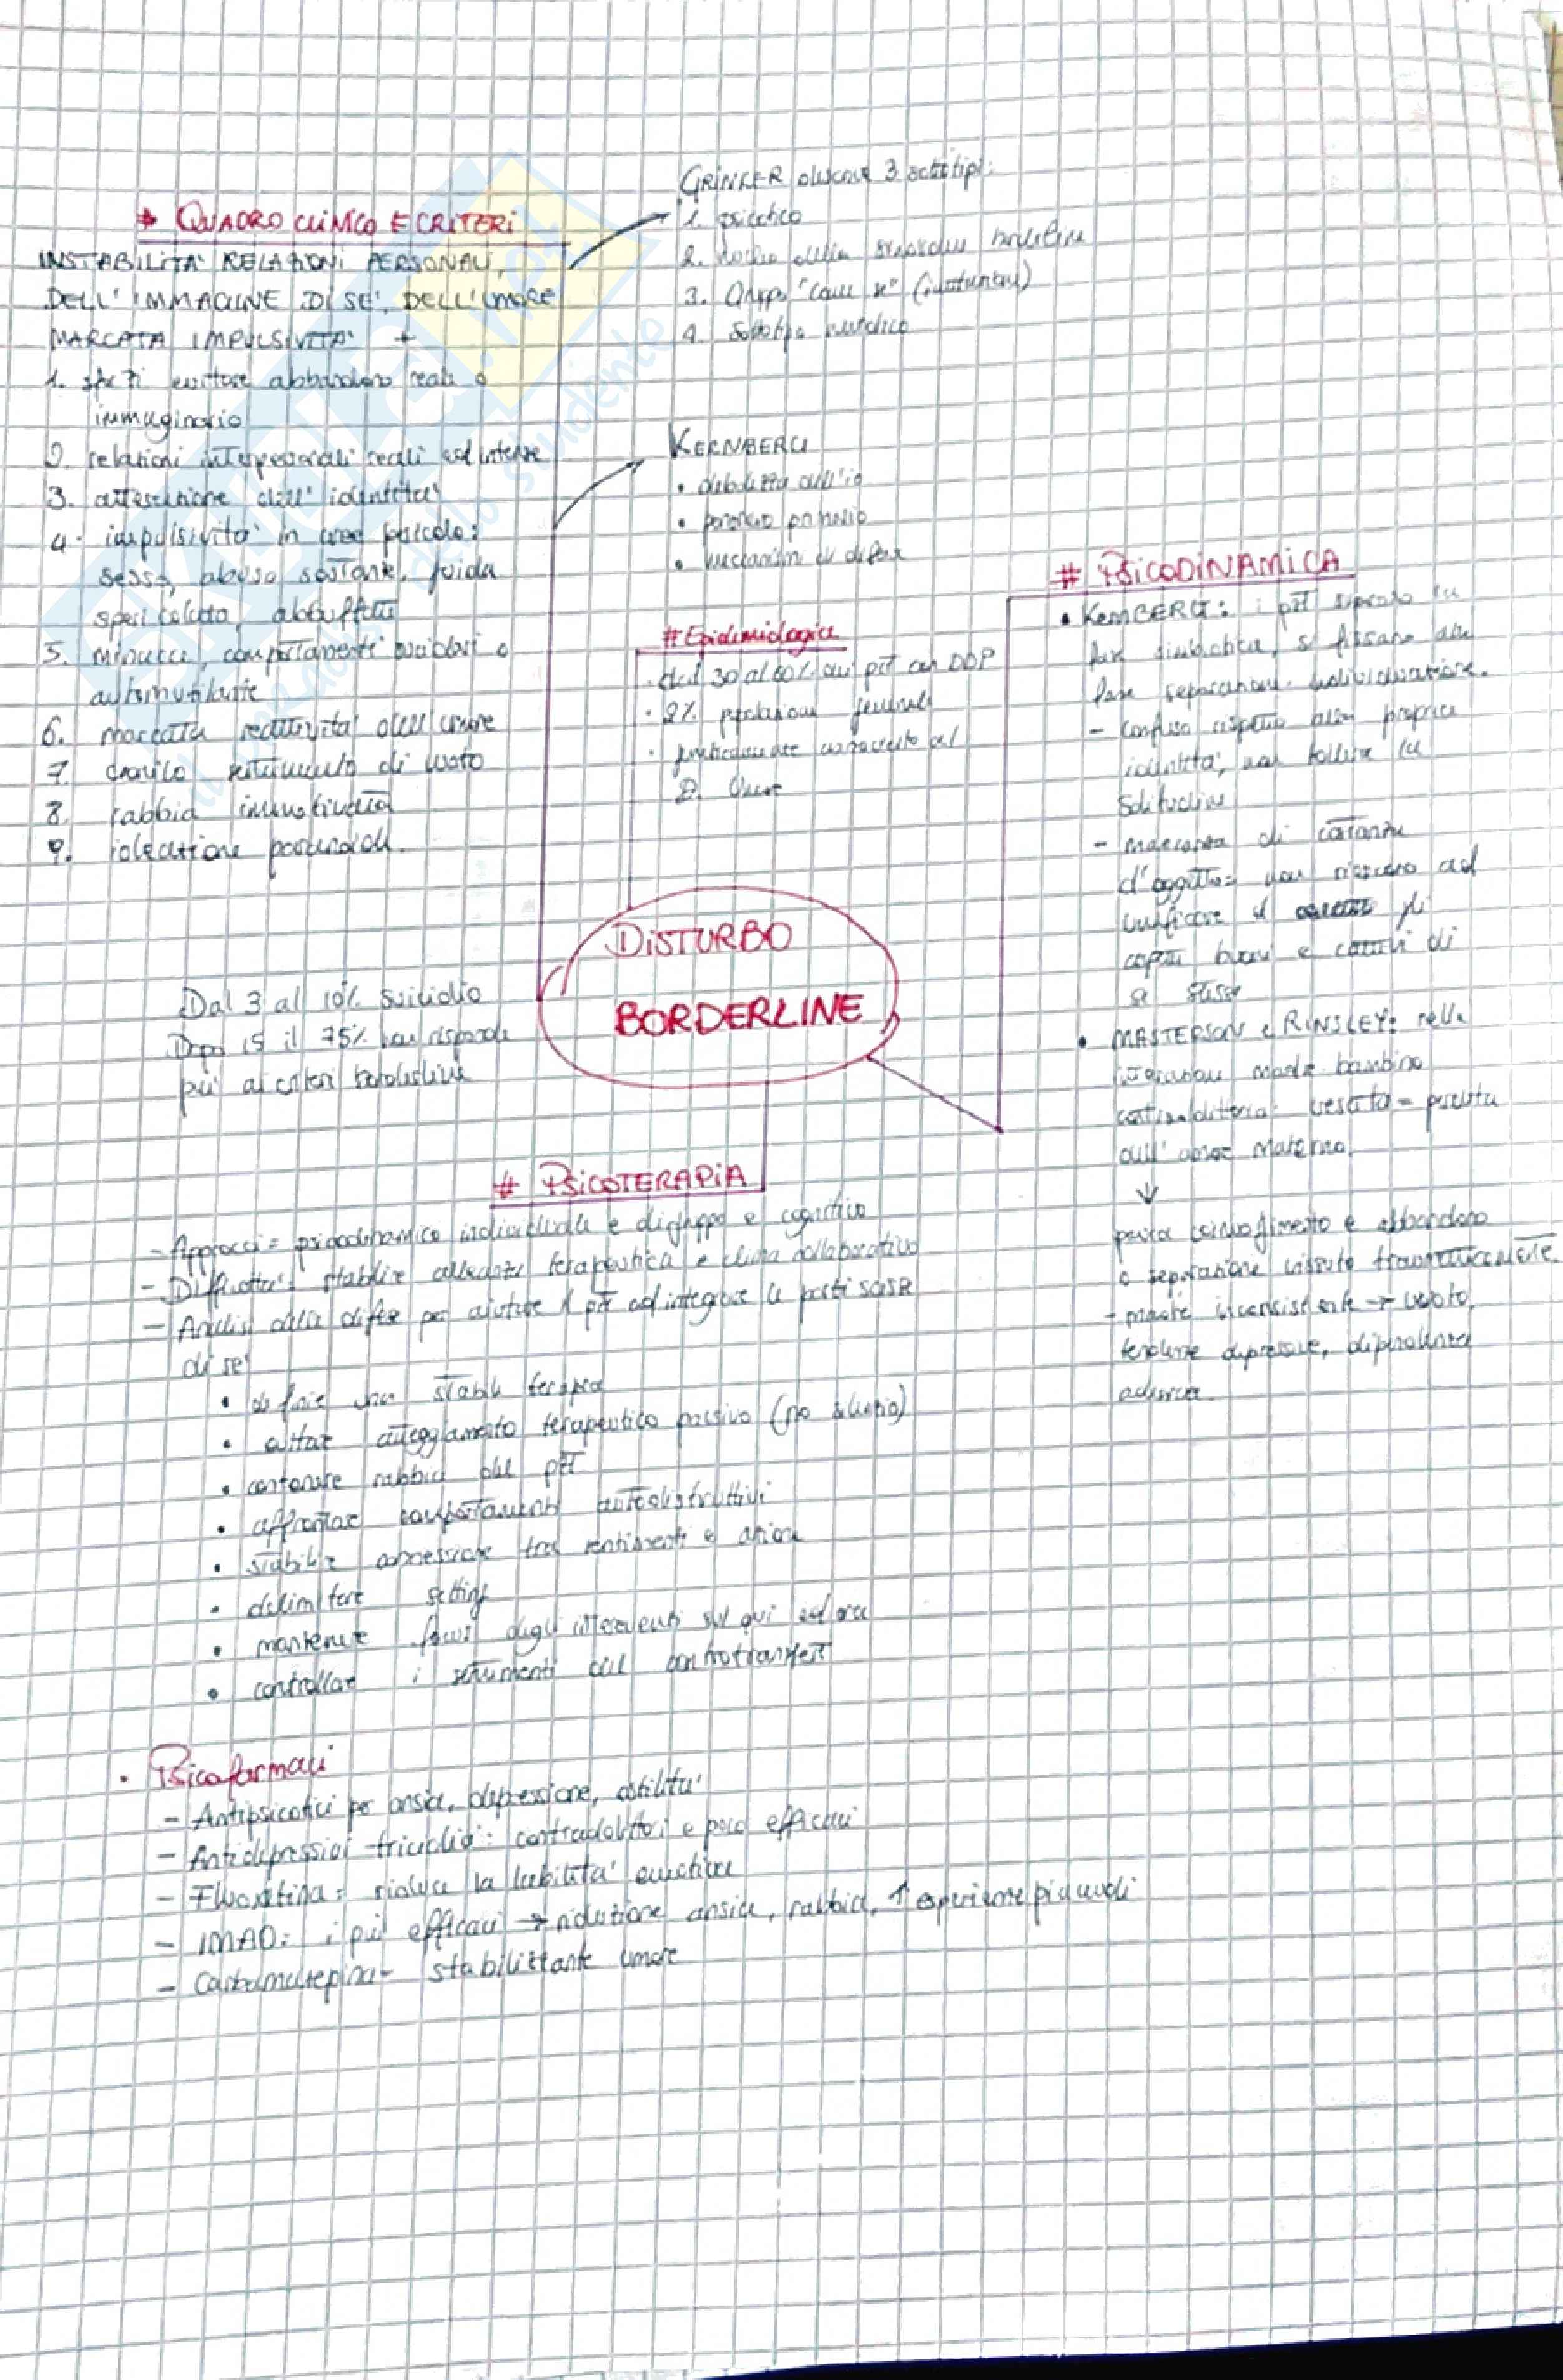 # QUADRO CLINICO E CRITERI
INSTABILITA' RELAZIONI PERSONALI,
DELL'IMMAGINE DI SE', DELL'UMORE
MARCATA IMPULSIVITA' +
1. sforzi evitare abbandono reale o
immaginario
2. relazioni interpersonali reali ed intense
3. alterazione dell'identita'
4. impulsivita' in aree pericolo:
sesso, abuso sostanze, guida
spericolata, abbuffate
5. minacce, comportamenti suicidari o
automutilante
6. marcata reattivita' dell'umore
7. cronico sentimento di vuoto
8. rabbia immotivata
9. ideazione paranoide.
GRINKER descrive 3 sottotipi:
1. psicotico
2. nucleo della sindrome borderline
3. Gruppo "come se"
4. Sottotipo nevrotico
KERNBERG
• debolezza dell'io
• processo primario
• meccanismi di difesa
# Epidemiologia
• dal 30 al 60% dei pzt con DDP
• 2% popolazione generale
• frequentemente associato al
D. Umore
DISTURBO
BORDERLINE
Dal 3 al 10% suicidio
Dopo 15 il 75% non risponde
più ai criteri borderline
# PSICODINAMICA
• KERNBERG: i pzt superato la
fase simbiotica, si fissano alla
fase separazione-individuazione.
- confuso rispetto alla propria
identità, non tollera la
solitudine
- mancanza di costanza
d'oggetto= non riescono ad
unificare gli
aspetti buoni e cattivi di
se stessi
• MASTERSON e RINSLEY: nella
interazione madre bambino
contraddittoria: crescita = perdita
dell'amore materno.
↓
paura coinvolgimento e abbandono
o separazione vissuta traumaticamente.
- madre inconsistente → vuoto,
tendenze depressive, dipendenza
adesiva.
# PSICOTERAPIA
- Approcci= psicodinamico individuale e di gruppo e cognitivo
- Difficoltà: stabilire alleanza terapeutica e clima collaborativo
- Analisi delle difese per aiutare il pzt ad integrare le parti scisse
di se'
• definire una stabile terapia
• evitare atteggiamento terapeutico passivo (no silenzio)
• contenere rabbia del pzt
• affrontare comportamenti autodistruttivi
• stabilire connessione tra sentimenti e azione
• delimitare setting
• mantenere focus degli interventi sul qui ed ora
• controllare i sentimenti del controtransfert
• Psicofarmaci
- Antipsicotici per ansia, depressione, ostilita'
- Antidepressivi triciclici: contraddittori e poco efficaci
- Fluoxetina= riduce la labilita' emotiva
- IMAO: i più efficaci → riduzione ansia, rabbia, ↑ esperienze piacevoli
- Carbamazepina- stabilizzante umore